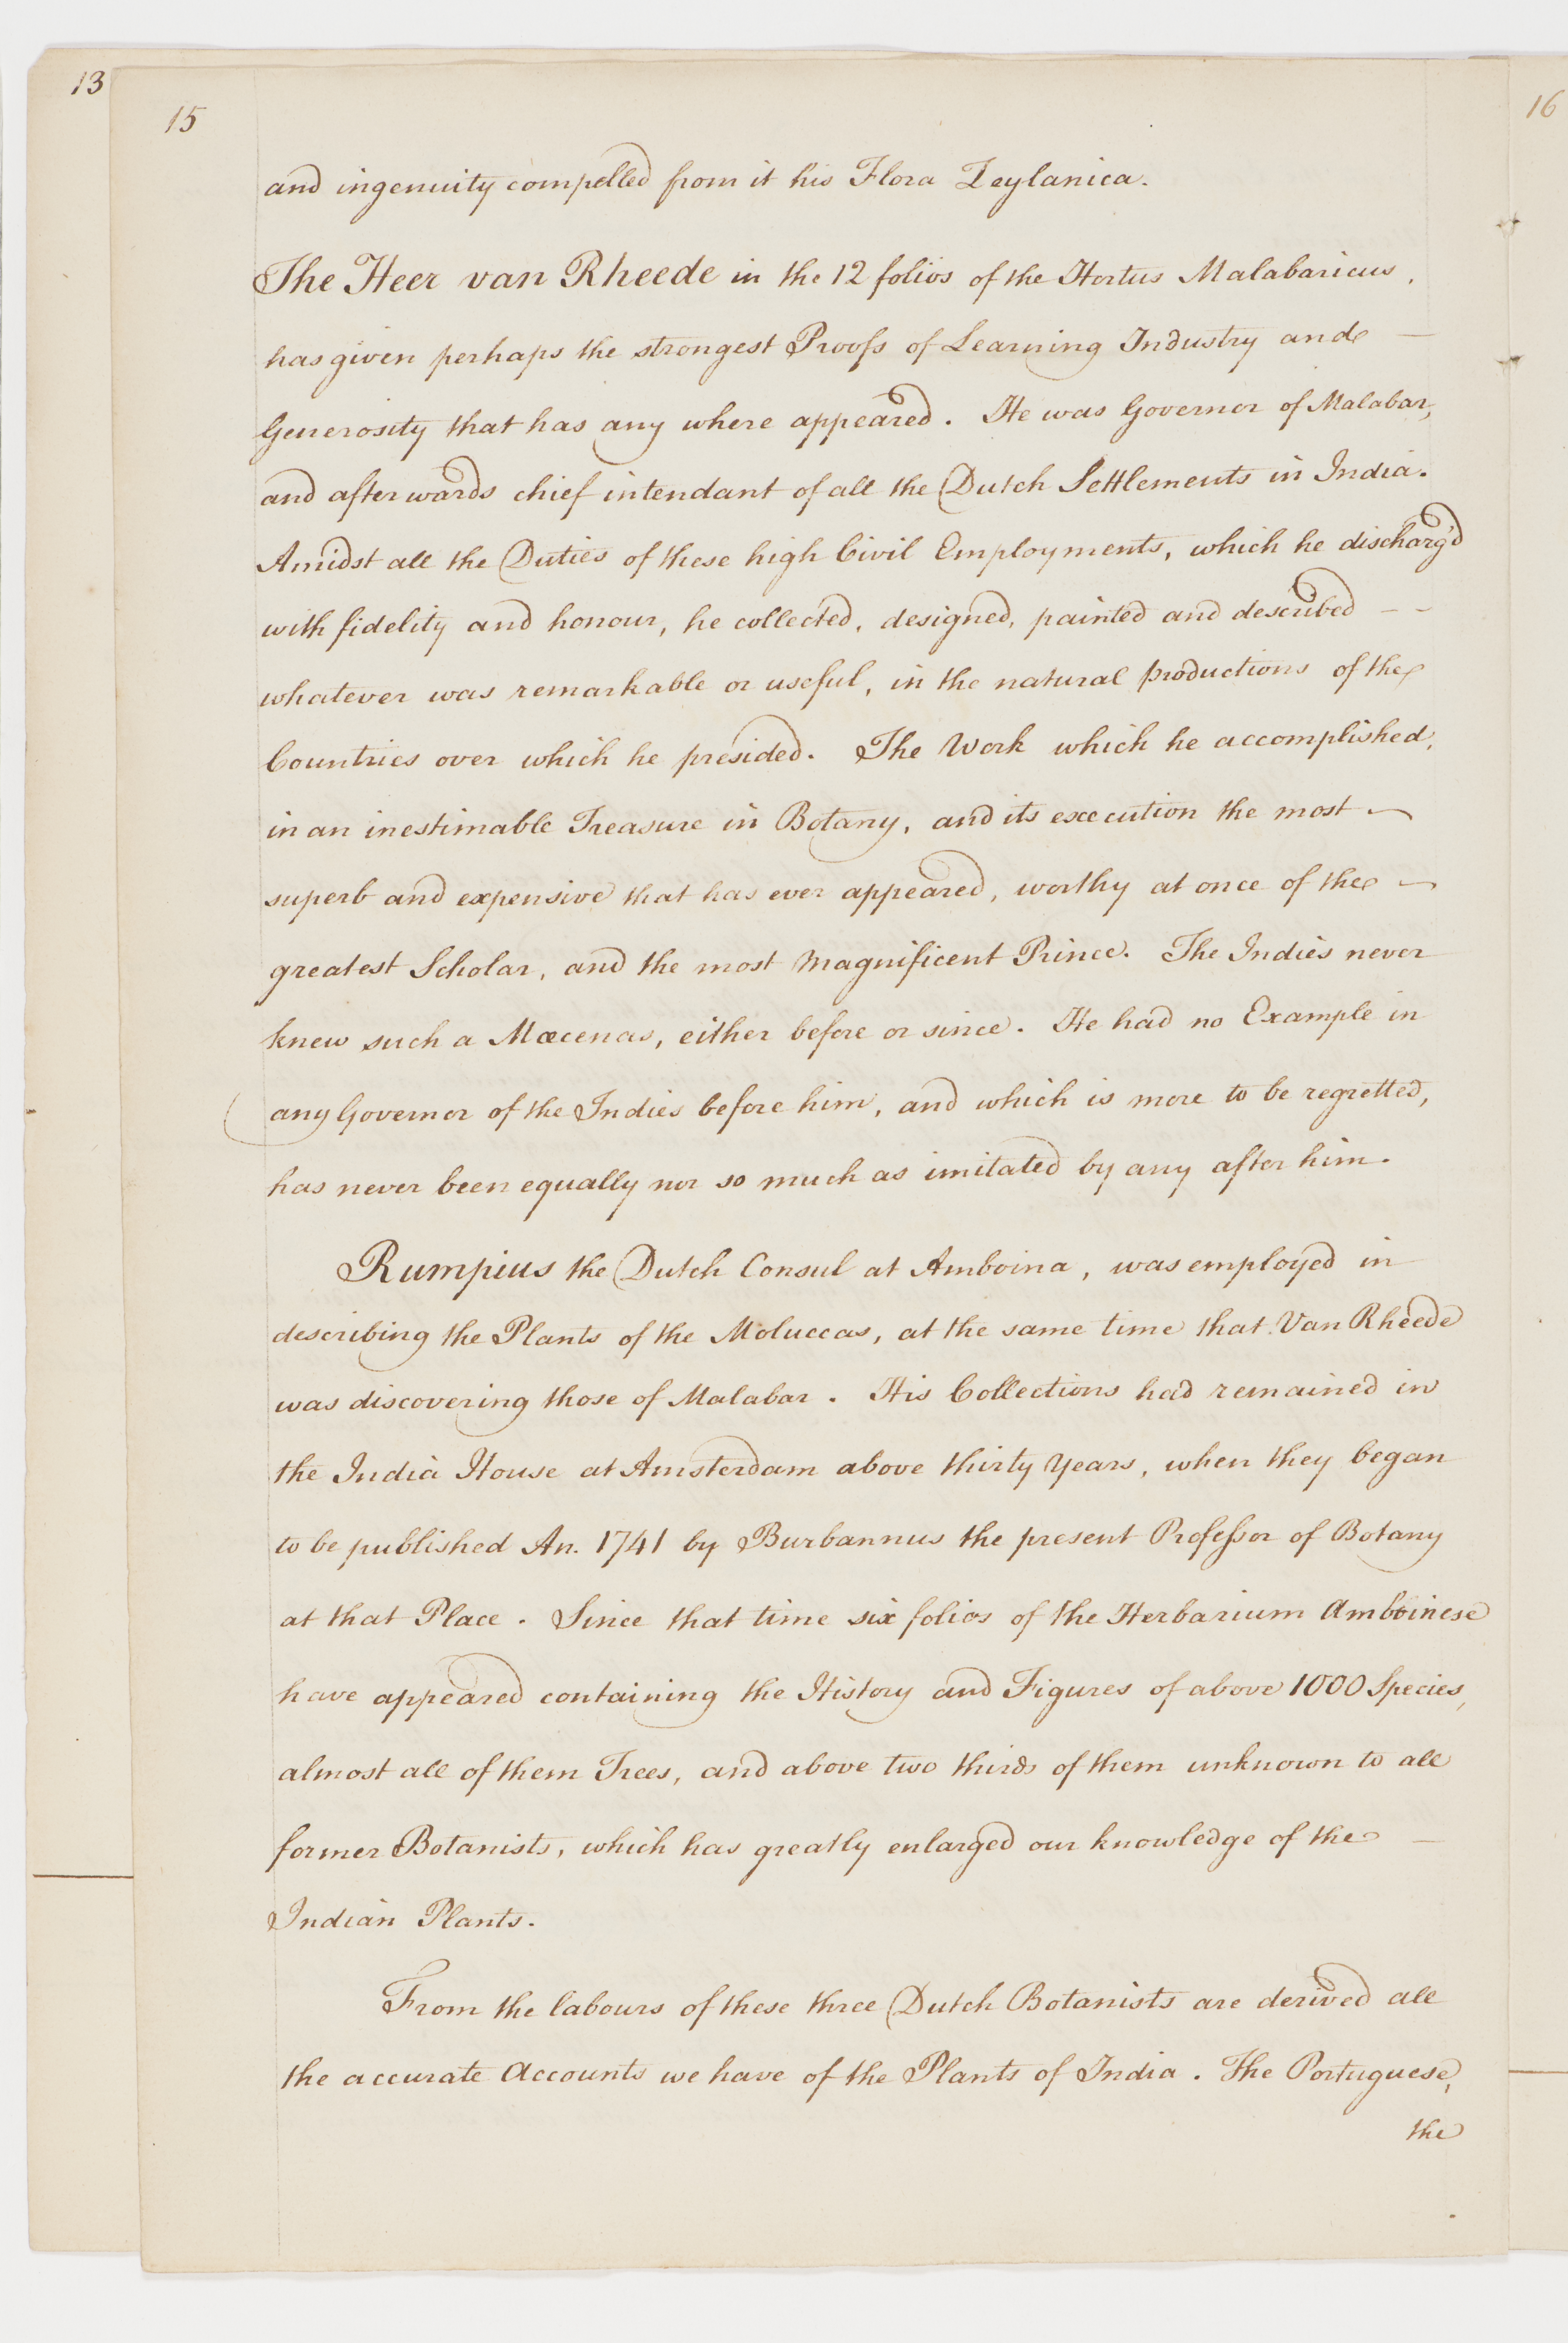 13
15
16
and ingenuity compelled from it his Flora Zeylanica.
The Heer van Rheede in the 12 folios of the Hortus Malabaricus,
has given perhaps the strongest Proofs of Learning Industry and —
Generosity that has any where appeared. He was Governor of Malabar,
and afterwards chief intendant of all the Dutch Settlements in India.
Amidst all the Duties of these high Civil Employments, which he discharg'd
with fidelity and honour, he collected, designed, painted and described – –
whatever was remarkable or useful, in the natural productions of the
Countries over which he presided. The Work which he accomplished,
in an inestimable Treasure in Botany, and its execution the most –
superb and expensive that has ever appeared, worthy at once of the –
greatest Scholar, and the most magnificent Prince. The Indies never
knew such a Mœcenas, either before or since. He had no Example in
any Governor of the Indies before him, and which is more to be regretted,
has never been equally nor so much as imitated by any after him.
Rumpius the Dutch Consul at Amboina, was employed in
describing the Plants of the Moluccas, at the same time that Van Rheede
was discovering those of Malabar. His Collections had remained in
the India House at Amsterdam above thirty Years, when they began
to be published An. 1741 by Burbannus the present Professor of Botany
at that Place. Since that time six folios of the Herbarium Amboinese
have appeared containing the History and Figures of above 1000 Species,
almost all of them Trees, and above two thirds of them unknown to all
former Botanists, which has greatly enlarged our knowledge of the —
Indian Plants.
From the labours of these three Dutch Botanists are derived all
the accurate Accounts we have of the Plants of India. The Portuguese,
the